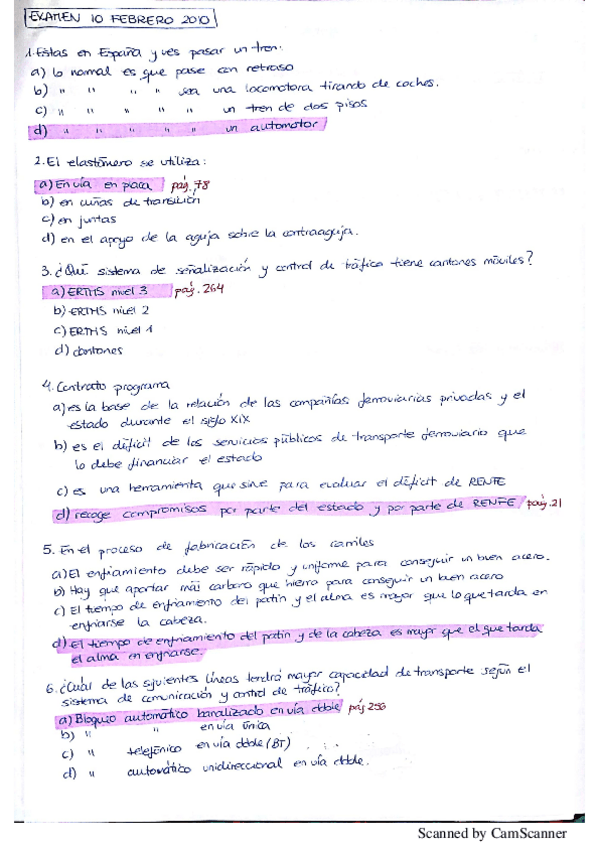 EXAMEN 10 FEBRERO 2010
1. Estas en España y ves pasar un tren:
a) lo normal es que pase con retraso
b) " " " " sea una locomotora tirando de coches.
c) " " " " " un tren de dos pisos
d) " " " " " un automotor
2. El elastómero se utiliza:
a) En vía en placa pág. 78
b) en cuñas de transición
c) en juntas
d) en el apoyo de la aguja sobre la contraaguja.
3. ¿Qué sistema de señalización y control de tráfico tiene cantones móviles?
a) ERTMS nivel 3 pág. 264
b) ERTMS nivel 2
c) ERTMS nivel 1
d)
4. Contrato programa
a) es la base de la relación de las compañías ferroviarias privadas y el
estado durante el siglo XIX
b) es el déficit de los servicios públicos de transporte ferroviario que
lo debe financiar el estado
c) es una herramienta que sirve para evaluar el déficit de RENFE
d) recoge compromisos por parte del estado y por parte de RENFE pág. 21
5. En el proceso de fabricación de los carriles
a) El enfriamiento debe ser rápido y uniforme para conseguir un buen acero.
b) Hay que aportar más carbono que hierro para conseguir un buen acero
c) El tiempo de enfriamiento del patín y el alma es mayor que lo que tarda en
enfriarse la cabeza.
d) El tiempo de enfriamiento del patín y de la cabeza es mayor que el que tarda
el alma en enfriarse.
6. ¿Cuál de las siguientes líneas tendrá mayor capacidad de transporte según el
sistema de comunicación y control de tráfico?
a) Bloqueo automático banalizado en vía doble pág 256
b) " " en vía única
c) " telefónico en vía doble (BT)
d) " automático unidireccional en vía doble.
Scanned by CamScanner